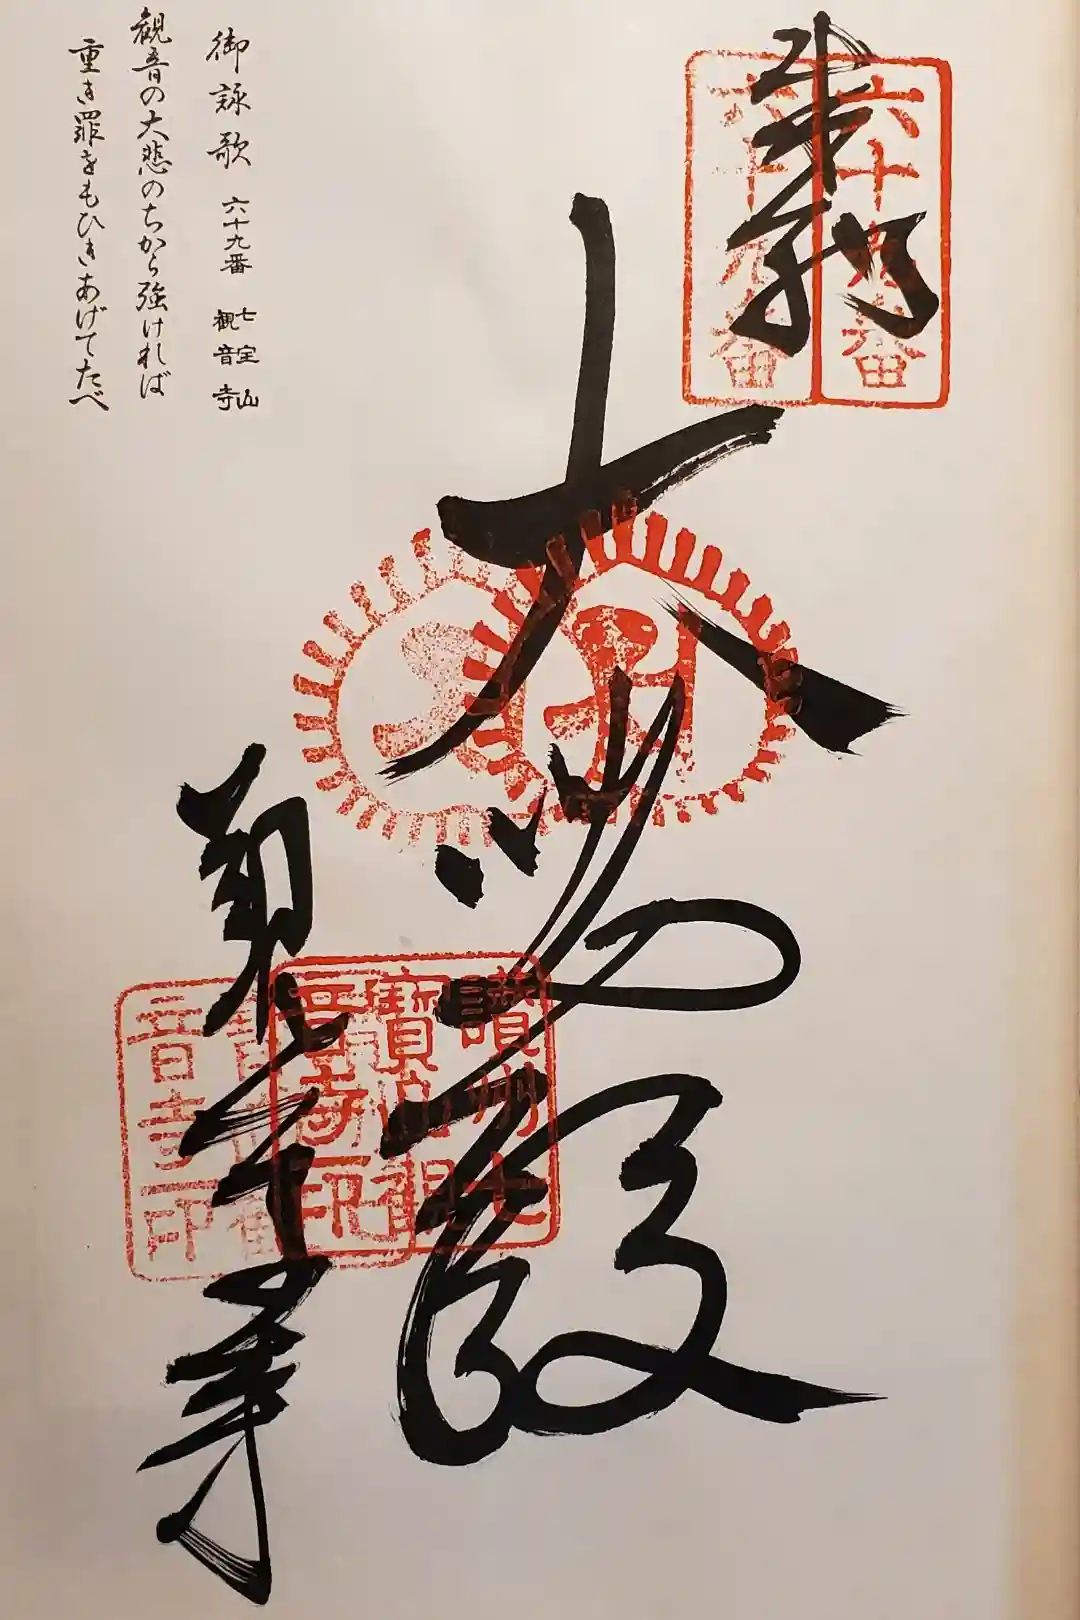 奉納
六十九番
六十九番
大悲殿
讃州七
寶山觀
音寺印
音寺印
観音寺
御詠歌 六十九番 七宝山 観音寺
観音の大悲のちから強ければ
重き罪をもひきあげてたべ